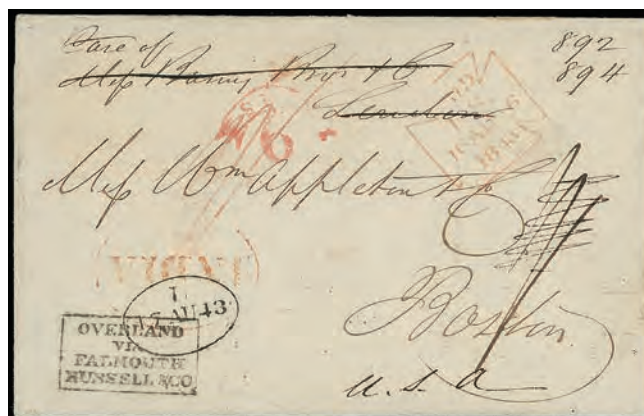 Care of
Mess Baring Bros & Co
London
892
894
Mess Wm Appleton & Co
INDIA
L
17 AU 43
OVERLAND
VIA
FALMOUTH
RUSSELL & CO
Boston
U.S.A